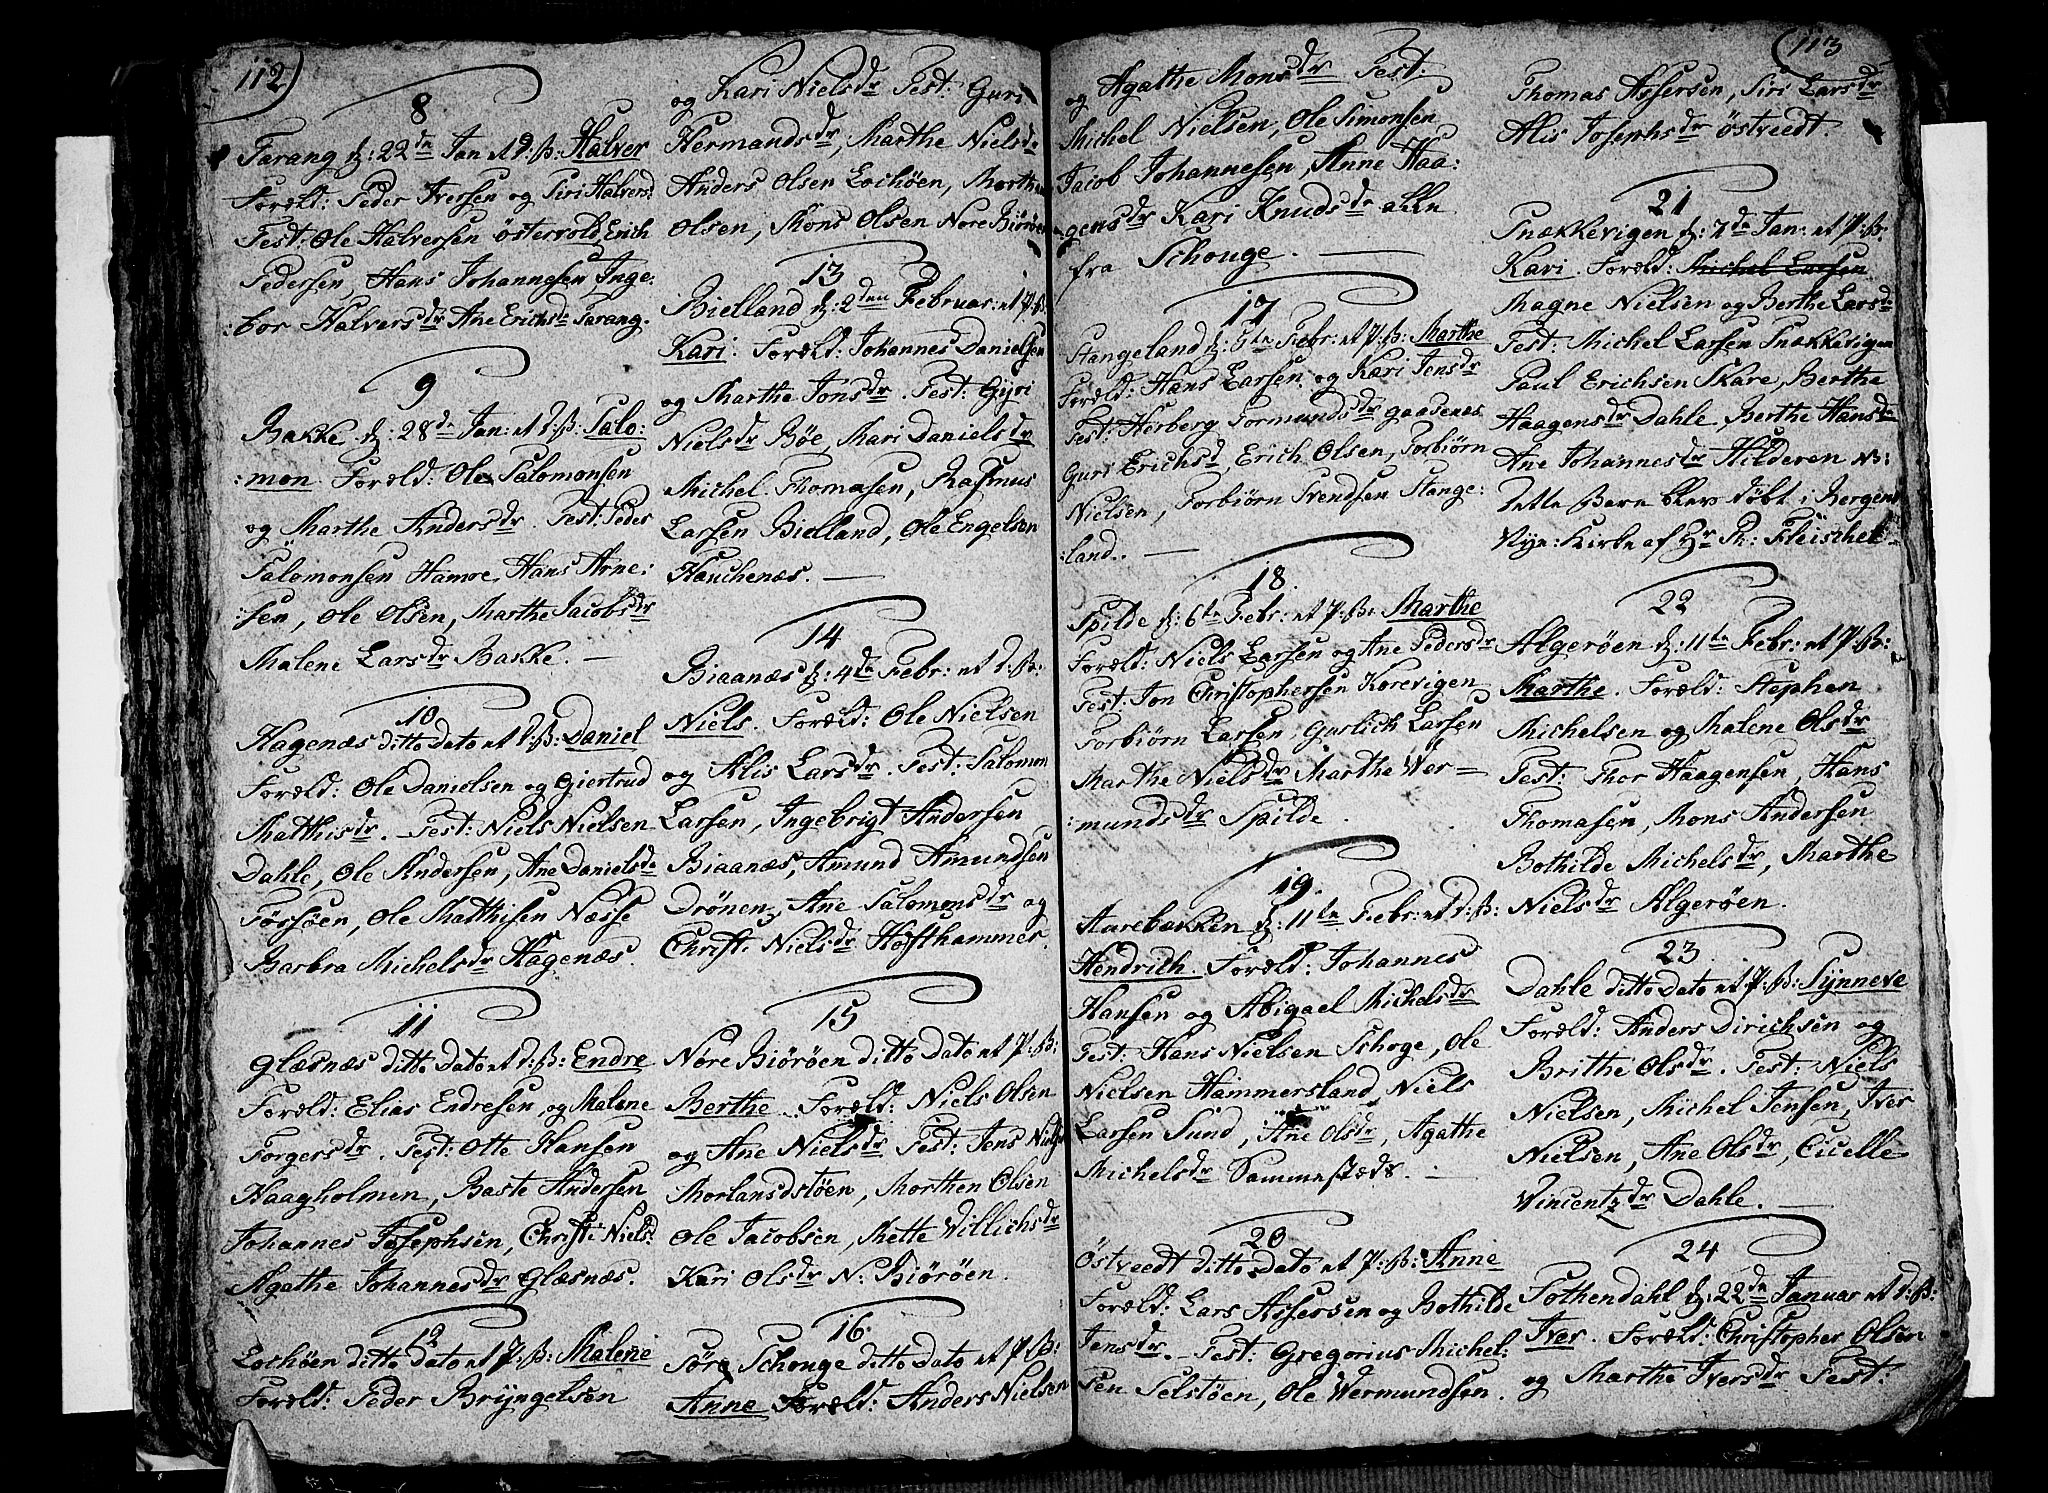 112)
8
Tarang d: 22de Jan et D: B: Halver
Foræld: Peder Iversen og Siri Halvers:
Test: Ole Halversen östervold, Erich
Pedersen, Hans Johannesen, Inge:
:bor Halversdr Ane Erichsdr Tarang.
9
Bakke d: 28de Jan: et D: B: Salo:
:mon. Foræld: Ole Salomonsen
og Marthe Andersdr. Test: Peder
Salomonsen Hamre, Hans Arne:
:sen, Ole Olsen, Marthe Jacobsdr
Malene Larsdr Bakke. —
10
Hagenæs ditto Dato et D: B: Daniel
Foræld: Ole Danielsen og Giertrud
Mathisdr. Test: Niels Nielsen
Dahle, Ole Andersen, Ane Danielsdr
Forsöen, Ole Mathisen Næsse
Barbra Michelsdr Hagenæs.
11
Glæsnæs ditto Dato et D: B: Endre
Foræld: Elias Endresen og Malene
Torgersdr. Test: Otte Hansen
Haagholmen, Baste Andersen
Johannes Josephsen, Christi Niels:
Agathe Johannesdr Glæsnæs.
12
Lochöen ditto Dato et P: B: Malene
Foræld: Peder Bryngelsen
og Kari Nielsdr Test: Guri
Hermandsdr, Marthe Nielsdr
Anders Olsen Lochöen, Morthen
Olsen, Mons Olsen Nore Biöröen
13
Bielland d: 2den Februar: et P: B:
Kari. Foræld: Johannes Danielsen
og Marthe Jonsdr. Test: Gyri
Nielsdr Böe, Mari Danielsdr
Michel Thomasen, Rasmus
Larsen Bielland, Ole Engelsen
Hauchenæs. —
14
Biaanæs d: 4de Febr: et D: B:
Niels. Foræld: Ole Nielsen
og Alis Larsdr. Test: Salomon
Larsen, Ingebrigt Andersen
Biaanæs, Amund Amundsen
Drönen, Ane Salomonsdr og
Christi Nielsdr Hofthammer.
15
Nore Biöröen ditto Dato et P: B:
Berthe. Foræld: Niels Olsen
og Ane Nielsdr Test: Jens Niels
Morlandstöen, Morthen Olsen
Ole Jacobsen, Mette Willichsdr
Kari Olsdr N: Biöröen.
16
Söre Schouge ditto Dato et P: B:
Anne Foræld: Anders Nielsen
113
og Agathe Monsdr Test:
Michel Nielsen, Ole Simonsen
Jacob Johannesen, Anne Haa:
gensdr Kari Knudsdr alle
fra Schouge. —
17
Stangeland d: 5te Febr: et P: B: Marthe
Foræld: Hans Larsen og Kari Jensdr
Test: Herberg Tormundsdr
Guri Erichsd, Erich Olsen, Torbiörn
Nielsen, Torbiörn Svendsen Stange:
:land. —
18.
Spilde d: 6te Febr: et P: B: Marthe
Foræld: Niels Larsen og Ane Pedersdr
Test: Jon Christophersen Korevigen
Torbiörn Larsen, Gurlich Larsen
Marthe Nielsdr Marthe Wer—
:mundsdr Spilde.
19.
Aarebakken d: 11te Febr: et D: B:
Hendrich. Foræld: Johannes
Hansen og Abigael Michelsdr
Test: Hans Nielsen Schoge, Ole
Nielsen Hammersland, Niels
Larsen Sund, Ane Olsdr, Agathe
Michelsdr Sammesteds. —
20
Östvedt ditto Dato et P: B: Anne
Foræld: Lars Assersen og Bothilde
Jensdr. — Test: Gregorius Michel:
sen Selstöen, Ole Wermundsen.
Thomas Assersen, Siri Larsdr
Alis Josephsdr östvedt.
21
Snekkevigen d: 7de Jan: et P: B:
Kari. Foræld: Michel Larsen
Magne Nielsen og Berthe Larsdr
Test: Michel Larsen Snekkevigen
Paul Erichsen Skare, Berthe
Haagensdr Dahle, Berthe Hansdr
Ane Johannesdr Hilderen NB:
Dette Barn blev döbt i Bergens
Nye: Kirke af Hr Pr: Fleischer
22
Algeröen d: 11te Febr: et P: B:
Marthe. Foræld: Stephen
Michelsen og Malene Olsdr
Test: Thor Haagensen, Hans
Thomasen, Mons Andersen
Bothilde Michelsdr, Marthe
Nielsdr Algeröen.
23.
Dahle ditto Dato et P: B: Synneve
Foræld: Anders Dirichsen og
Brithe Olsdr. Test: Niels
Nielsen, Michel Jensen, Iver
Nielsen, Ane Olsdr, Cicelle
Vincentzdr Dahle. —
24
Tothendahl d: 22de Januar et D: B:
Iver. Foræld: Christopher Olsen
og Marthe Iversdr. Test: